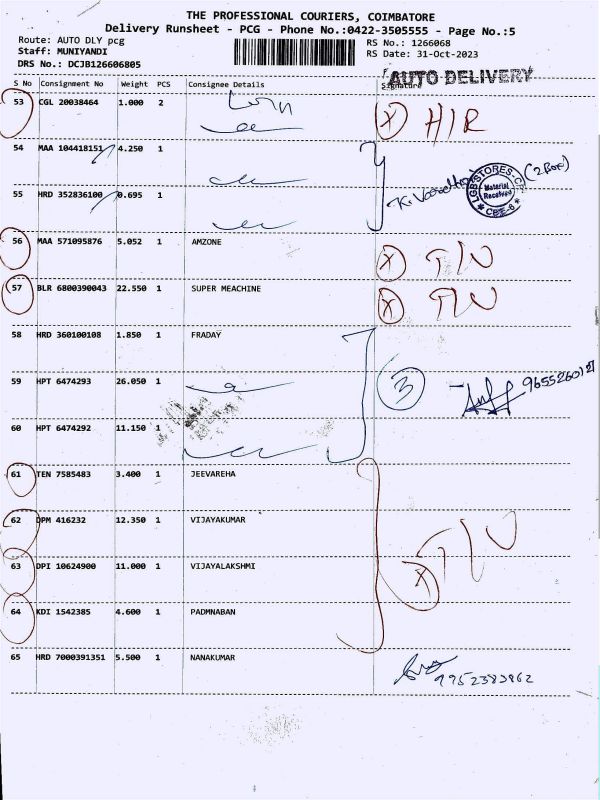 THE PROFESSIONAL COURIERS, COIMBATORE
Delivery Runsheet - PCG - Phone No.:0422-3505555 - Page No.:5
Route: AUTO DLY pcg
Staff: MUNIYANDI
DRS No.: DCJB126606805
RS No.: 1266068
RS Date: 31-Oct-2023
AUTO DELIVERY
S No Consignment No Weight PCS Consignee Details Signature
53 CGL 20038464 1.000 2
X H/R
54 MAA 104418151 4.250 1
LGB STORES
Material Received
CBE-6
55 HRD 352836100 0.695 1
56 MAA 571095876 5.052 1 AMZONE
X T/U
57 BLR 6800390043 22.550 1 SUPER MEACHINE
X T/U
58 HRD 360100108 1.850 1 FRADAY
59 HPT 6474293 26.050 1
3
60 HPT 6474292 11.150 1
61 TEN 7585483 3.400 1 JEEVAREHA
62 DPM 416232 12.350 1 VIJAYAKUMAR
X T/U
63 DPI 10624900 11.000 1 VIJAYALAKSHMI
64 KDI 1542385 4.600 1 PADMNABAN
65 HRD 7000391351 5.500 1 NANAKUMAR
9952383862